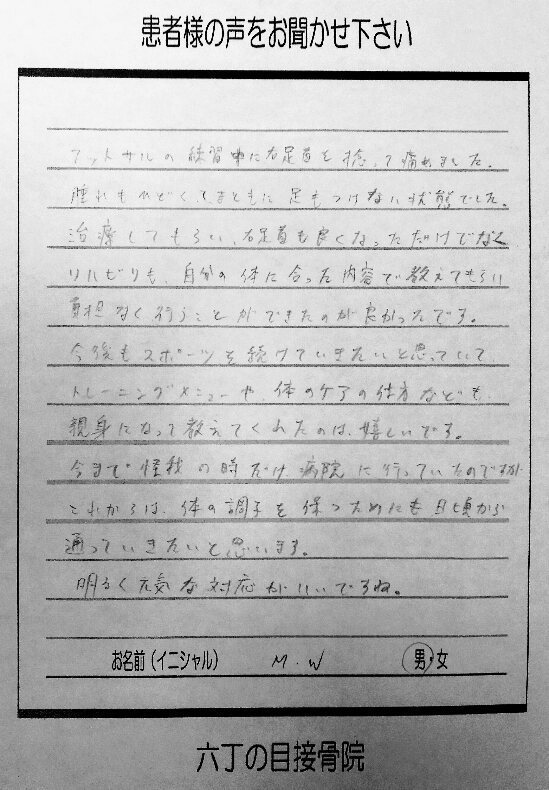 患者様の声をお聞かせ下さい
フットサルの練習中に右足首を捻って痛めました。
腫れもひどくてまともに足もつけない状態でした。
治療してもらい、右足首も良くなっただけでなく
リハビリも、自分の体に合った内容で教えてもらい
負担なく行うことができたのが良かったです。
今後もスポーツを続けていきたいと思っていて
トレーニングメニューや、体のケアの仕方なども
親身になって教えてくれたのは、嬉しいです。
今まで怪我の時だけ病院に行っていたのですが
これからは、体の調子を保つためにも日頃から
通っていきたいと思います。
明るく元気な対応がいいですね。
お名前(イニシャル) M・W 男・女
六丁の目接骨院